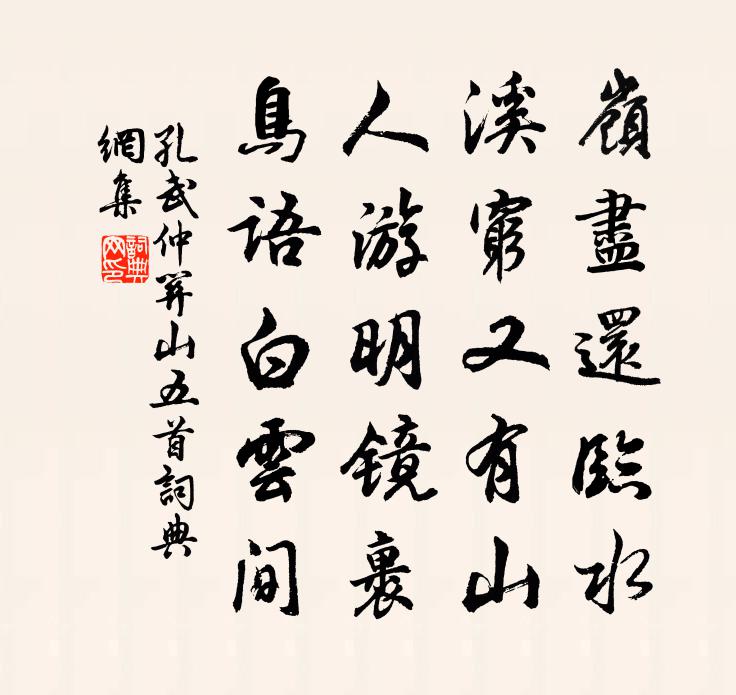 嶺盡還臨水
溪窮又有山
人游明鏡裏
鳥語白雲間
孔武仲羿山五首詞典
網集
詞典
网印